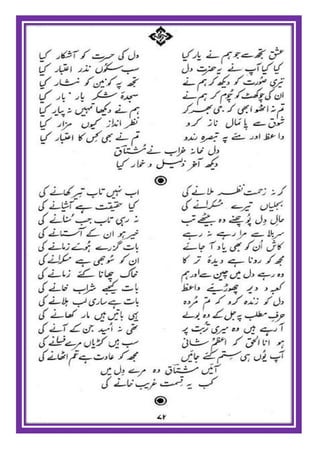 عشق تجھ سے جو ہم نے یار کیا
دل کی حسرت کو آشکار کیا
کیا کیا آپ نے یہ حضرت دل
سب سکوں نذر اعتبار کیا
تیری صورت کو دیکھ کر ہم نے
تجھ پہ کونین کو نثار کیا
ان کی چوکھٹ کو چوم کر ہم نے
سجدۂ شکر بار بار کیا
ہم نے دیکھا تمہیں نہ پیار کیا
شوق سے پامال ناز کرو
نظر انداز کیوں مزار کیا
واعظ اور مئے پہ تبصرہ زندہ
تم نے بھی کس کا اعتبار کیا
دل خانہ خراب نے مشتاق
دیکھ آخر ذلیل و خوار کیا
کر نہ زحمت نظر ملانے کی
اب نہیں تاب تیر کھانے کی
بجلیاں تیرے مسکرانے کی
کیا حقیقت ہے آشیانے کی
حال دل پوچھنے وہ بیٹھے تب
نہ رہی تاب جب سنانے کی
خیر ہو ان کے آستانے کی
کاش اُن کو بھی یاد آ جائے
بات گزرے ہوئے زمانے کی
مجھ کو رونا ہے دیدۂ تر کا
ان کو سوجھی ہے مسکرانے کی
وہ رہے دل میں چین سے اور ہم
خاک چھانا کئے زمانے کی
کعبہ و دیر چھوڑیئے واعظ
بات کیجئے شراب خانے کی
دل کو زندہ کرو کہ تم مردہ
بات ہے ساری لب ہلانے کی
حرف مطلب پہ جل کے وہ بولے
یہی باتیں ہیں مار کھانے کی
آ رہے ہیں وہ میری تربت پر
تھی نہ اُمید جن کے آنے کی
آپ یوں ہی ستم کئے جائیں
مجھ کو عادت ہے غم اٹھانے کی
آئیں مشتاق وہ مرے دل میں
کب یہ قسمت غریب خانے کی
۷۲